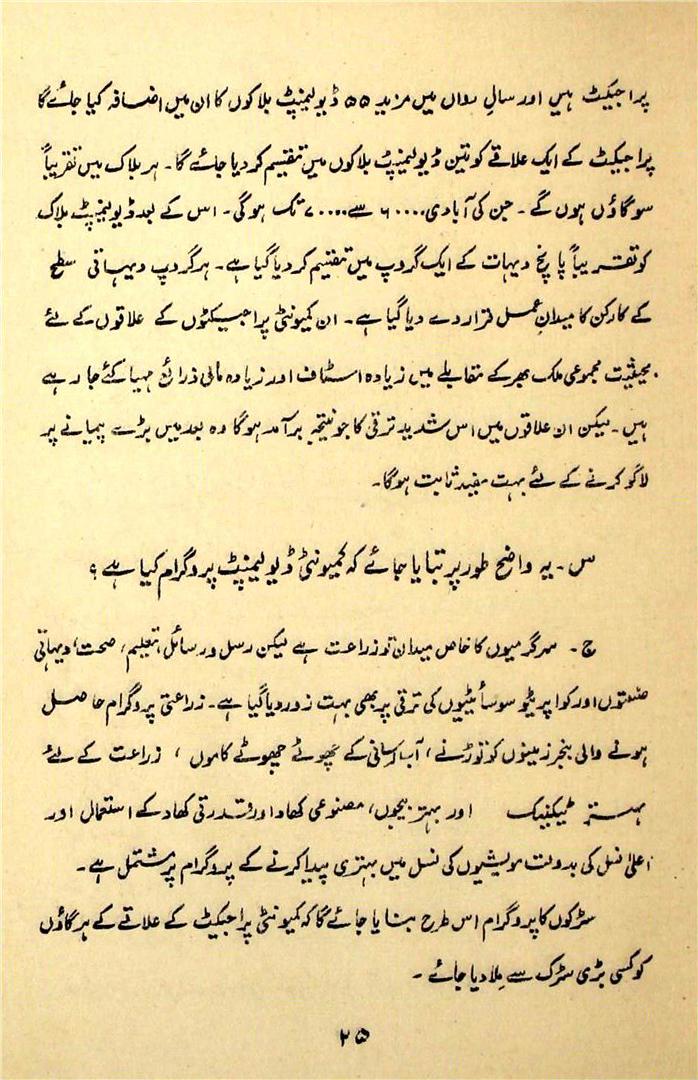 پراجیکٹ ہیں اور سالِ رواں میں مزید ۵۵ ڈیولیمنٹ بلاکوں کا ان میں اضافہ کیا جائے گا
پراجیکٹ کے ایک علاقے کو تین ڈیولیمنٹ بلاکوں میں تقسیم کر دیا جائے گا۔ ہر بلاک میں تقریباً
سو گاؤں ہوں گے۔ جن کی آبادی ۶۰۰۰۰ سے ۷۰۰۰۰ تک ہوگی۔ اس کے بعد ڈیولیمنٹ بلاک
کو تقریباً پانچ دیہات کے ایک گروپ میں تقسیم کر دیا گیا ہے۔ ہر گروپ دیہاتی سطح
کے کارکن کا میدانِ عمل قرار دے دیا گیا ہے۔ ان کمیونٹی پراجیکٹوں کے علاقوں کے لئے
بحیثیت مجموعی ملک بھر کے مقابلے میں زیادہ اسٹاف اور زیادہ مالی ذرائع مہیا کئے جا رہے
ہیں۔ لیکن ان علاقوں میں اس شدید ترقی کا جو نتیجہ برآمد ہوگا وہ بعد میں بڑے پیمانے پر
لاگو کرنے کے لئے بہت مفید ثابت ہوگا۔
س۔ یہ واضح طور پر بتایا جائے کہ کمیونٹی ڈیولیمنٹ پروگرام کیا ہے ؟
ج۔ سرگرمیوں کا خاص میدان تو زراعت ہے لیکن رسل و رسائل، تعلیم، صحت، دیہاتی
صنعتوں اور کواپریٹو سوسائیٹیوں کی ترقی پر بھی بہت زور دیا گیا ہے۔ زراعتی پروگرام حاصل
ہونے والی بنجر زمینوں کو توڑنے، آب رسانی کے چھوٹے چھوٹے کاموں، زراعت کے لئے
بہتر ٹیکنیک اور بہتر بیجوں، مصنوعی کھاد اور قدرتی کھاد کے استعمال اور
اعلیٰ نسل کی بدولت مویشیوں کی نسل میں بہتری پیدا کرنے کے پروگرام پر مشتمل ہے۔
سڑکوں کا پروگرام اس طرح بنایا جائے گا کہ کمیونٹی پراجیکٹ کے علاقے کے ہر گاؤں
کو کسی بڑی سڑک سے ملا دیا جائے۔
۲۵